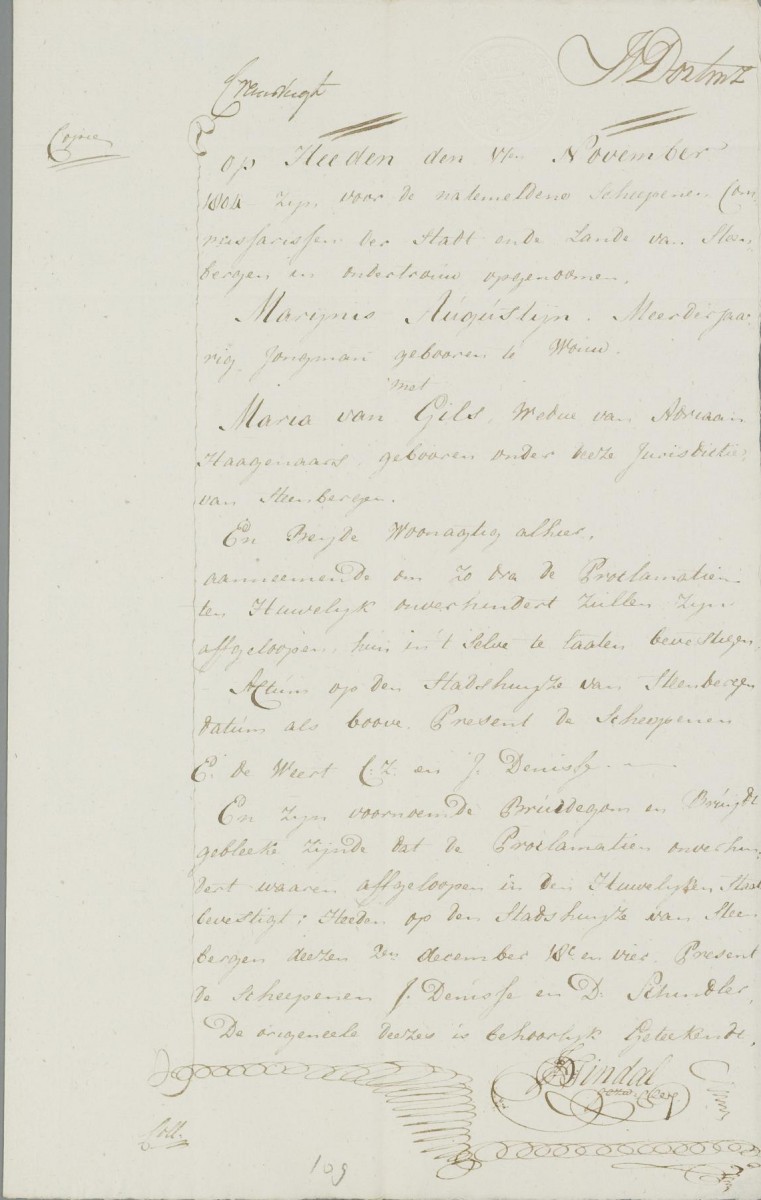 Copie
op Heeden den November
1804 zyn voor de natemeldene Scheepenen Com-
missarissen der Stadt ende Lande van Steen-
bergen in ondertrouw opgenoomen,
Marynis Augustijn. Meerderjaa-
rig Jongman gebooren te Wouw.
met
Maria van Gils, Wedue van Adriaan
Haagenaars, gebooren onder deeze Jurisdictie,
van Steenbergen.
En Beyde Woonagtig alhier,
aanneemende om zo dra de Proclamatien
ten Huwelyk onverhindert zullen zyn
affgeloopen, hun in't selve te laaten bevestigen,
Actum op den Stadshuyze van Steenbergen
datum als boove. Present de Scheepenen
E. de Weert C:Z: en J. Denisse.
En zyn voornoemde Bruidegom en Bruydt
gebleeke zijnde dat de Proclamatien onverhin-
dert waaren affgeloopen in den Huwelyken Staat
bevestigt; Heeden op den Stadshuyze van Steen
bergen deezen december 18c en vier. Present
de Scheepenen J. Denisse en D. Schindler,
De origeneele deezes is behoorlyk Geteekendt,
Coll:
109